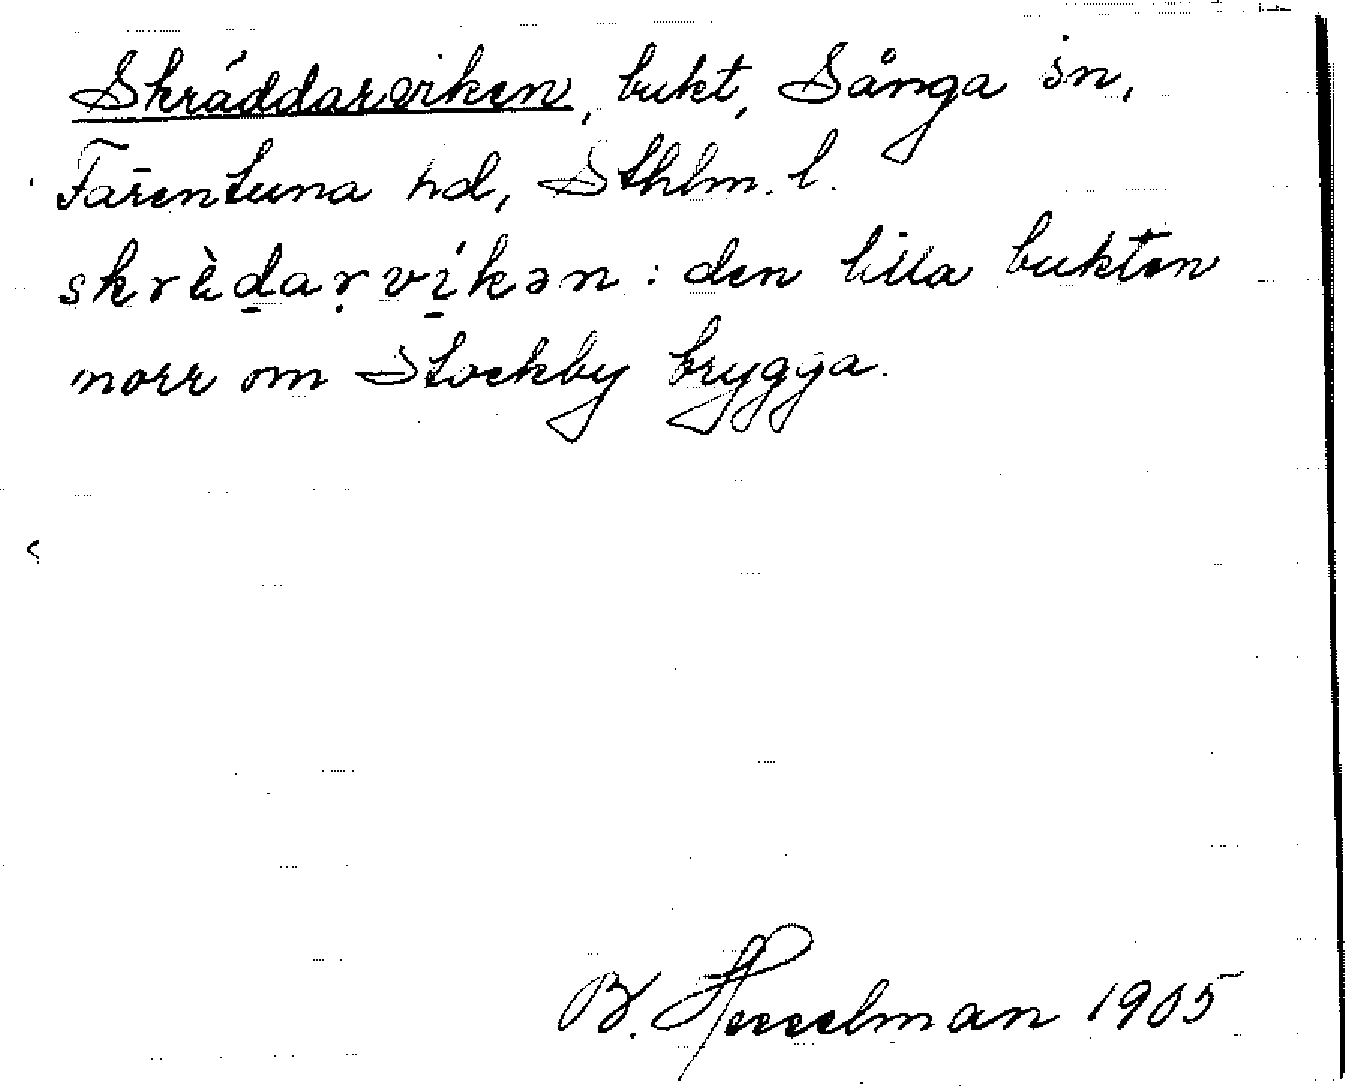 Skräddarviken, bukt, Sånga sn,
Färentuna hd, Sthlm. l.
skrèdarvíkən: den lilla bukten
norr om Stockby brygga.
B. Hesselman 1905